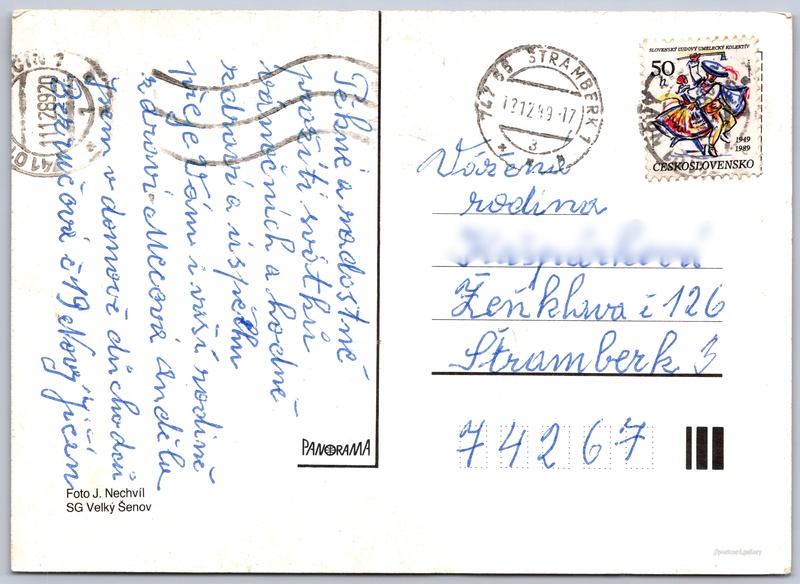 Pěkné a radostné
prožití svátků
vánočních a hodně
zdraví a úspěchu
přeje Vám i vaší rodině
zdraví Mecová Anděla
jsem v domově důchodců
Bezručova č 19 Nový Jičín
Foto J. Nechvíl
SG Velký Šenov
PANORAMA
ČÍN 1
11.12.89-20
741 01
742 66 ŠTRAMBERK 1
12.12.89-17
3
SLOVENSKÝ ĽUDOVÝ UMELECKÝ KOLEKTÍV
50
h
1949
1989
ČESKOSLOVENSKO
Vážená
rodina
Ženklava č 126
Štramberk 3
74267
//postcard.gallery